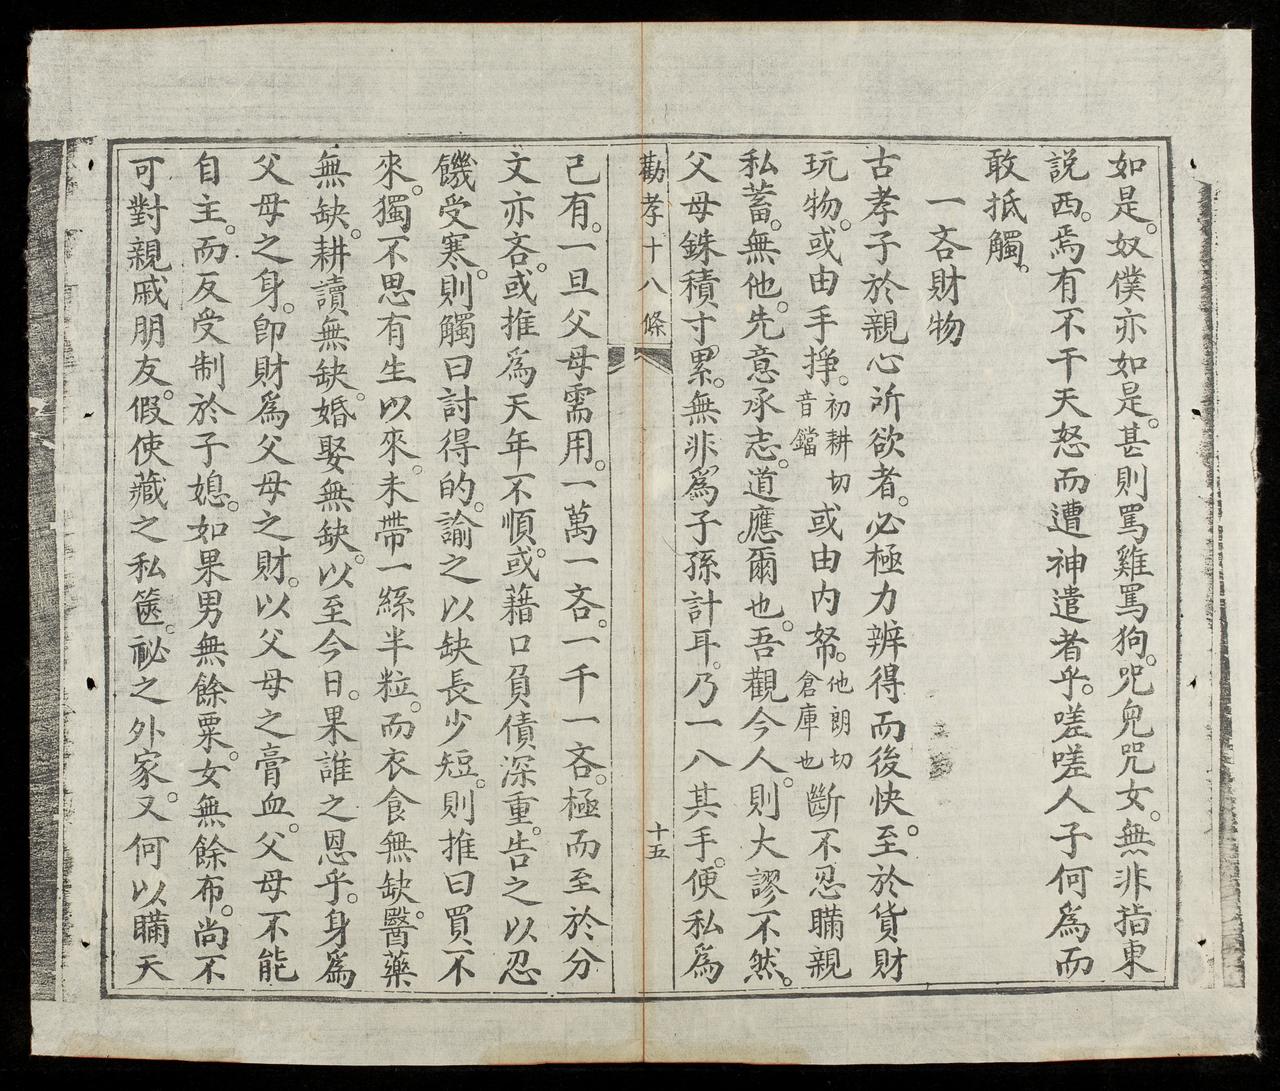 如是。奴僕亦如是。甚則罵雞罵狗。咒兒咒女。無非指東
説西。焉有不干天怒而遭神遣者乎。嗟嗟人子何爲而
敢抵觸。
一吝財物
古孝子於親心所欲者。必極力辨得而後快。至於貨財
玩物。或由手掙。初耕切音鐺或由内帑。他朗切倉庫也斷不忍瞞親
私蓄。無他。先意承志。道應爾也。吾觀今人。則大謬不然。
父母銖積寸累。無非爲子孫計耳。乃一八其手。便私爲
勸孝十八條
十五
己有。一旦父母需用。一萬一吝。一千一吝。極而至於分
文亦吝。或推爲天年不順。或藉口負債深重。告之以忍
饑受寒。則觸曰討得的。諭之以缺長少短。則推曰買不
來。獨不思有生以來。未帶一絲半粒。而衣食無缺。醫藥
無缺。耕讀無缺。婚娶無缺。以至今日。果誰之恩乎。身爲
父母之身。卽財爲父母之財。以父母之膏血。父母不能
自主。而反受制於子媳。如果男無餘粟。女無餘布。尚不
可對親戚朋友。假使藏之私篋。祕之外家。又何以瞞天